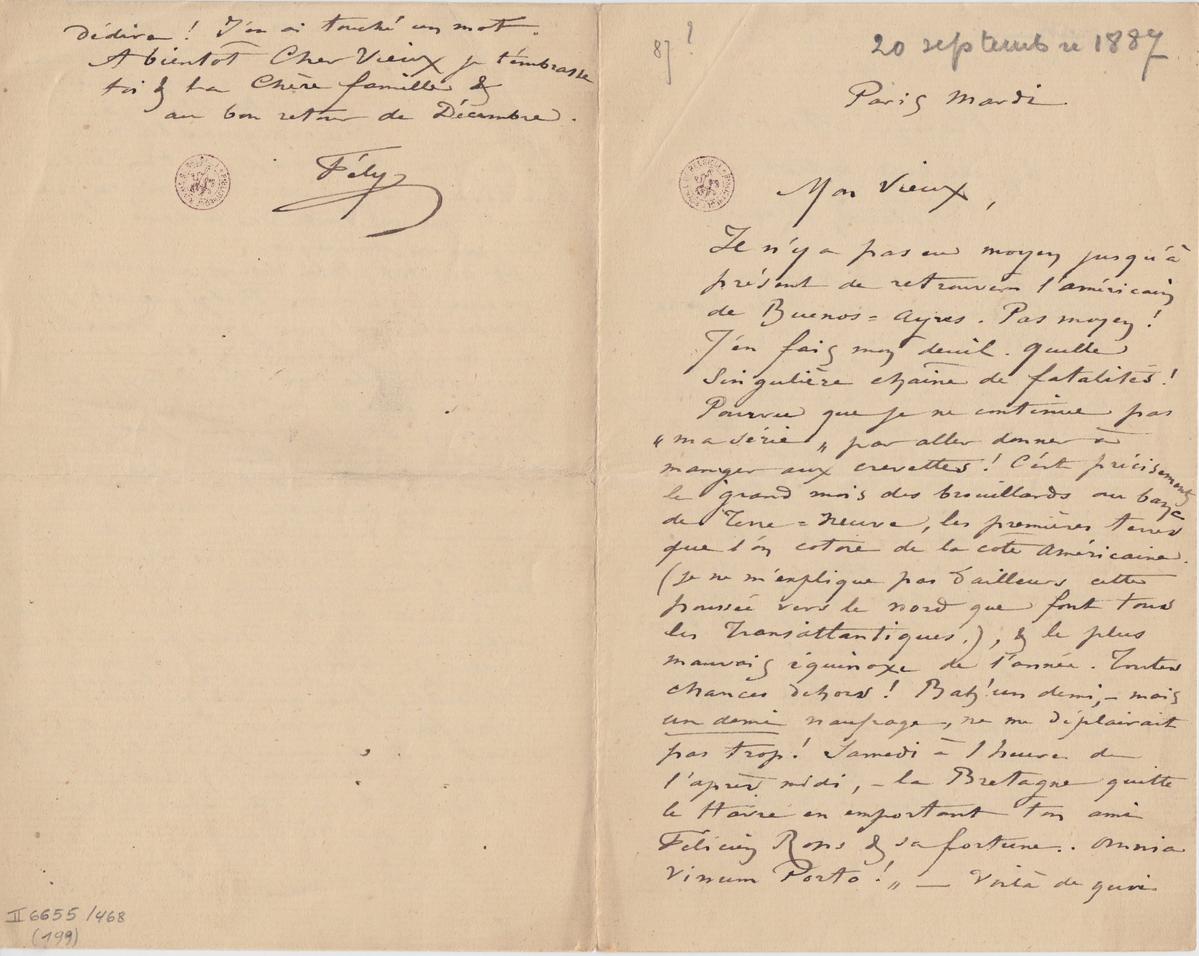 dédire ! J'en ai touché un mot.
A bientôt Cher Vieux je t'embrasse
toi & ta Chère famille &
au bon retour de Décembre.
Fély
II 6655 /468
(199)
87 ?
20 septembre 1887
Paris Mardi
Mon Vieux,
Il n'y a pas eu moyen jusqu'à
présent de retrouver l'américain
de Buenos=Ayres. Pas moyen !
J'en fais mon deuil. Quelle
Singulière chaîne de fatalités !
Pourvu que je ne continue pas
„ma série„ par aller donner à
manger aux crevettes ! C'est précisement
le grand mois des brouillards au banc
de Terre=Neuve, les premières terres
que l'on cotoie de la côte Américaine.
(je ne m'explique pas d'ailleurs cette
poussée vers le nord que font tous
les Transatlantiques.), & le plus
mauvais équinoxe de l'année. Toutes
chances dehors ! Bah! un demi, – mais
un demi naufrage, ne me déplairait
pas trop ! Samedi à 1 heure de
l'après midi, – la Bretagne quitte
le Havre en emportant ton ami
Félicien Rops & sa fortune.. Omnia
Vinum Porto ! „ — Voilà de quoi